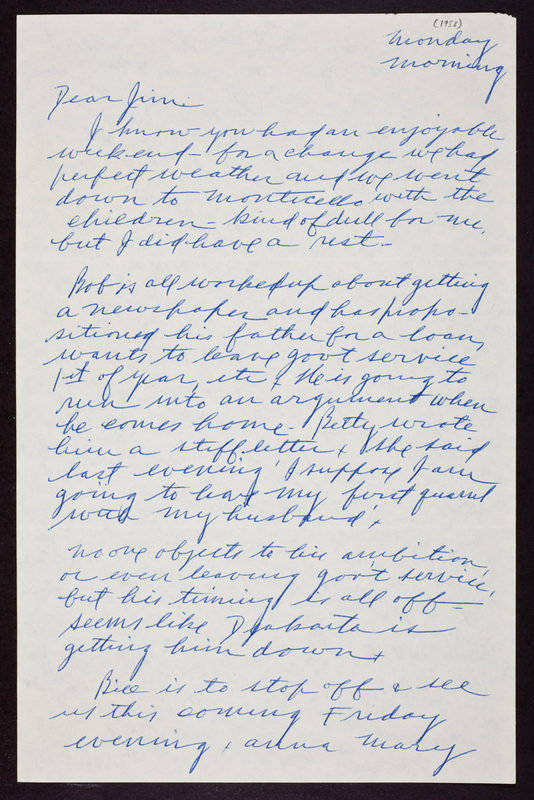 (1958)
Monday
Morning
Dear Jim:
I know you had an enjoyable
weekend - for a change we had
perfect weather and we went
down to Monticello with the
children - kind of dull for me,
but I did have a rest. -
Bob is all worked up about getting
a newspaper and has propo-
sitioned his father for a loan,
wants to leave gov't service
1st of year, etc + He is going to
run into an argument when
he comes home. Betty wrote
him a stiff letter + she said
last evening 'I suppose I am
going to have my first quarrel
with my husband' +
No one objects to his ambition,
or even leaving gov't service,
but his timing is all off -
seems like Djakarta is
getting him down +
Bill is to stop off & see
us this coming Friday
evening, Anna Mary